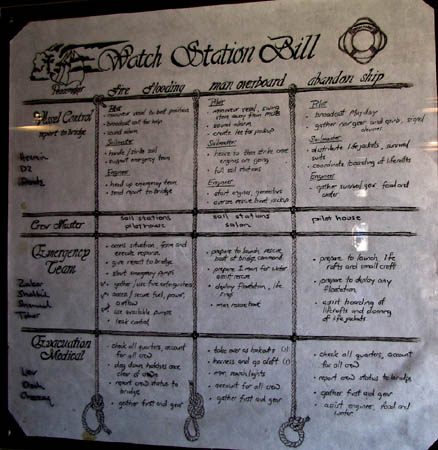 Watch Station Bill
Fire Flooding
man overboard
abandon ship
Vessel Control
report to Bridge
Pilot
maneuver vessel to best position
broadcast out for help
sound alarm
Sailmaster
handle / strike sail
augment emergency team
Engineer
head up emergency team
send report to Bridge
Pilot
maneuver vessel, swing
stern away from
sound alarm
create lee for pickup
Sailmaster
heave to then strike once
engines are going
full sail stations
Engineer
start engines, generators
oversee rescue boat pickup
Pilot
broadcast Mayday
gather nav gear and epirb,
Sailmaster
distribute life jackets, survival
suits
coordinate boarding of life rafts
Engineer
gather survival gear food and
water
Crew Muster
sail stations
pilot house
sail stations
salon
pilot house
Emergency
Team
access situation, form and
execute response
give report to bridge
start emergency pumps
gather / use fire extinguishers
access / secure fuel, power,
airflow
use available pumps
leak control
prepare to launch rescue
boat at bridge command
prepare 1 man for water
assist rescue
deploy flotation, life
ring
man rescue boat
prepare to launch life
rafts and small craft
prepare to deploy any
floatation
assist boarding of
liferafts and donning
of life jackets
Evacuation
Medical
check all quarters, account
for all crew
dog down hatches once
clear of crew
report crew status to
bridge
gather first aid gear
take over as lookouts
harness and go aloft
man searchlights
account for all crew
gather first aid gear
check all quarters, account
for all crew
report crew status to bridge
gather first aid gear
assist engineer, food and
water